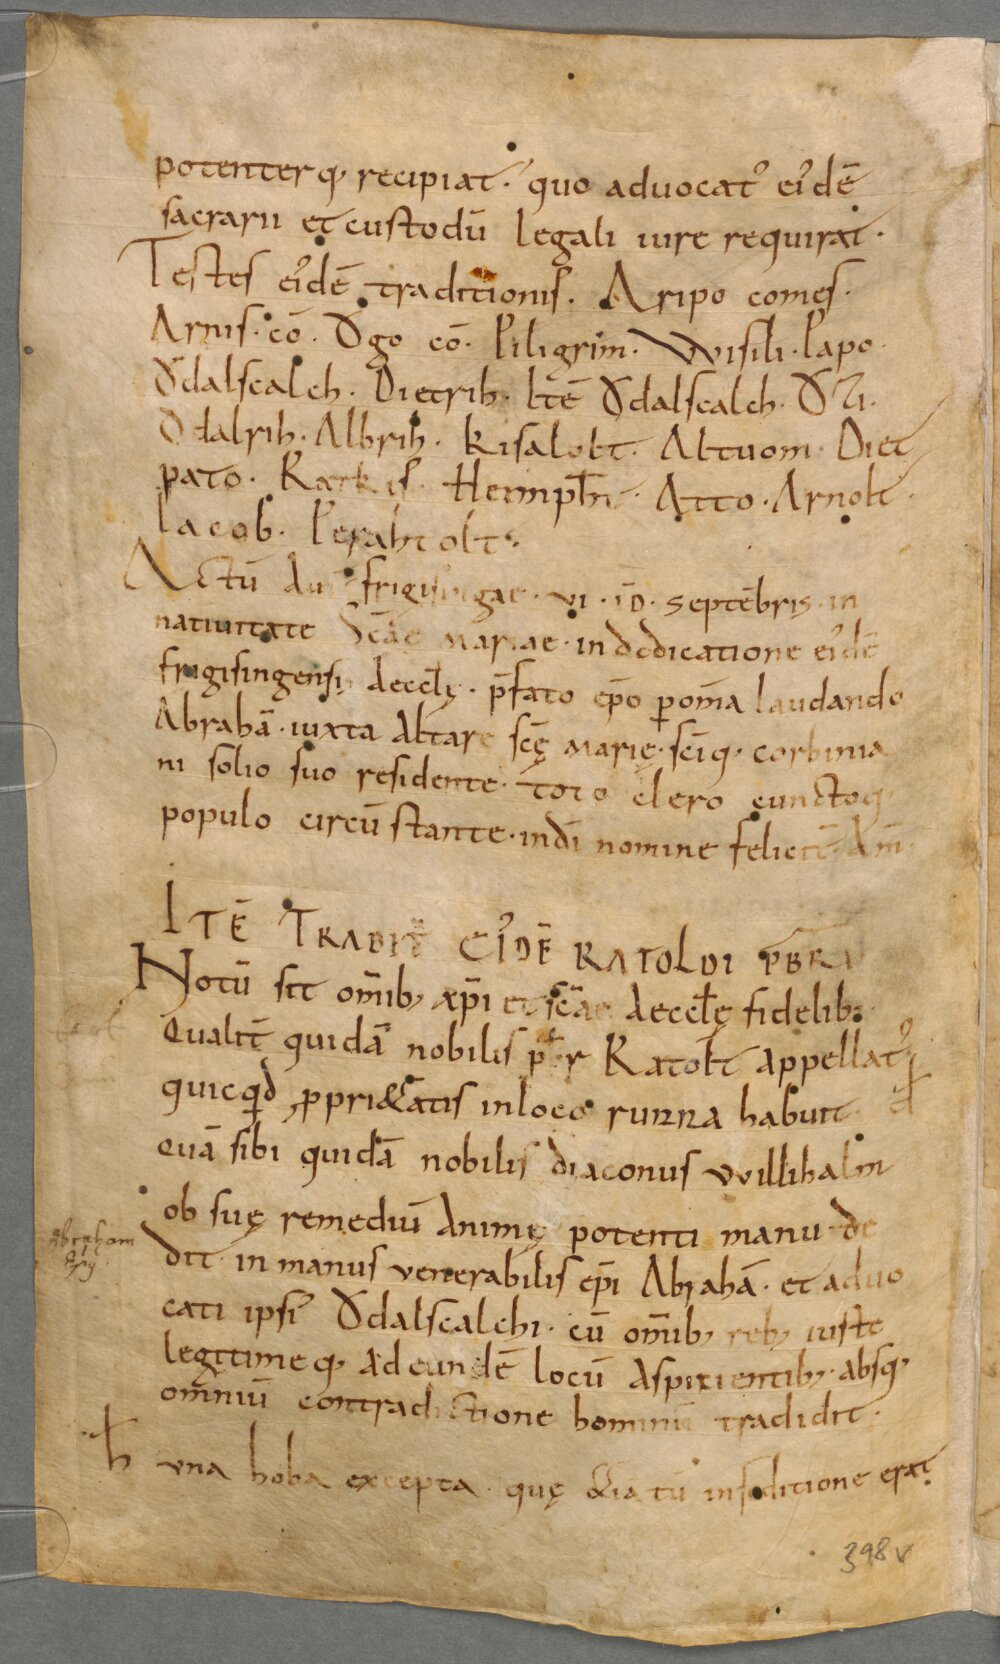 potenterq; recipiat· quo aduocat᾽ ei᾽dē
sacrarii et custodū legali iure requirat·
Testes ei᾽dē traditionis· Aripo comes·
Arnis· cō· Ŏgo cō· Piligrim· VVisili· Papo·
Ŏdalscalch· Dietrih· Itē Ŏdalscalch· Ŏzi·
Ŏdalrih· Albrih· Kisalolt· Altuom· Diet
pato· Ratkis· Heimpħt· Atto· Arnolt·
Iacob· Perahtolt·
Actū Au frigisingae· vi· iđ· septēbris· in
natiuitate Scāe Mariae· in dedicatione ei᾽dē
frigisingensis aeccłę· p̄fato ep̄o ꝑ om̄a laudando
Abrahā· iuxta Altare scę̄ Marię· sciq;· corbinia
ni solio suo residente· toto clero cunctoq;
populo circū stante· in dī nomine feliciť· Am̄·
ITĒ TRADIT̄ EI᾽DĒ RATOLDI PBRI
Notū sit om̄ib; xp̄i et scāe aeccłę fidelib;
Qualiť quidā nobilis p̄br Ratolt appellat᾽
quicqd ꝓprietatis in loco rurra habuit
quā sibi quidā nobilis diaconus vvillihalm
ob suę remediū animę potenti manu de
Abraham
ep̄s
dit· in manus venerabilis ep̄i Abrahā· et aduo
cati ipsi᾽ Ŏdalscalchi· cū om̄ib; reb; iuste
legitimeq; ad eundē locū aspicientib;· absq;
omniū contradictione hominū tradidit·
ħ una hoba excepta quę &iā tū in sꝰditione erat
398v